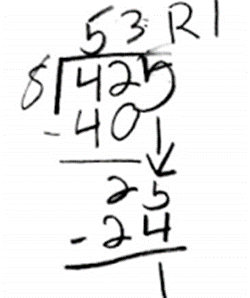 53 R1
8 425
- 40
25
- 24
1